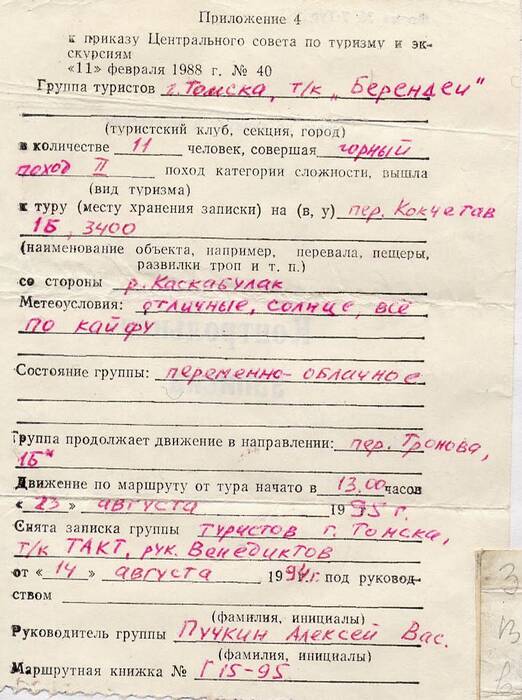 Приложение 4
к приказу Центрального совета по туризму и эк-
скурсиям
«11» февраля 1988 г. № 40
Группа туристов г. Томска, т/к „Берендеи"
(туристский клуб, секция, город)
в количестве 11 человек, совершая горный
поход II поход категории сложности, вышла
(вид туризма)
к туру (месту хранения записки) на (в, у) пер. Кокчетав
1Б, 3400
(наименование объекта, например, перевала, пещеры,
развилки троп и т. п.)
со стороны р. Каскабулак
Метеоусловия: отличные, солнце, всё
по кайфу
Состояние группы: переменно-облачное
Группа продолжает движение в направлении: пер. Тронова,
1Б*
Движение по маршруту от тура начато в 13.00 часов
« 23 » августа 1995 г.
Снята записка группы туристов г. Томска,
т/к ТАКТ, рук. Венедиктов
от « 14 » августа 1994г. под руковод-
ством
(фамилия, инициалы)
Руководитель группы Пучкин Алексей Вас.
(фамилия, инициалы)
Маршрутная книжка № Г15-95
З
В